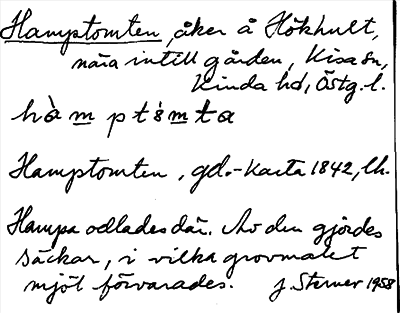 Hamptomten, åker å Hökhult,
nära intill gården, Kisa sn,
Kinda hd, Östg. l.
hà m p tó m t a
Hamptomten, gd.-karta 1842, lh.
Hampa odlades där. Av den gjordes
säckar, i vilka grovmalet
mjöl förvarades. J. Sterner 1958